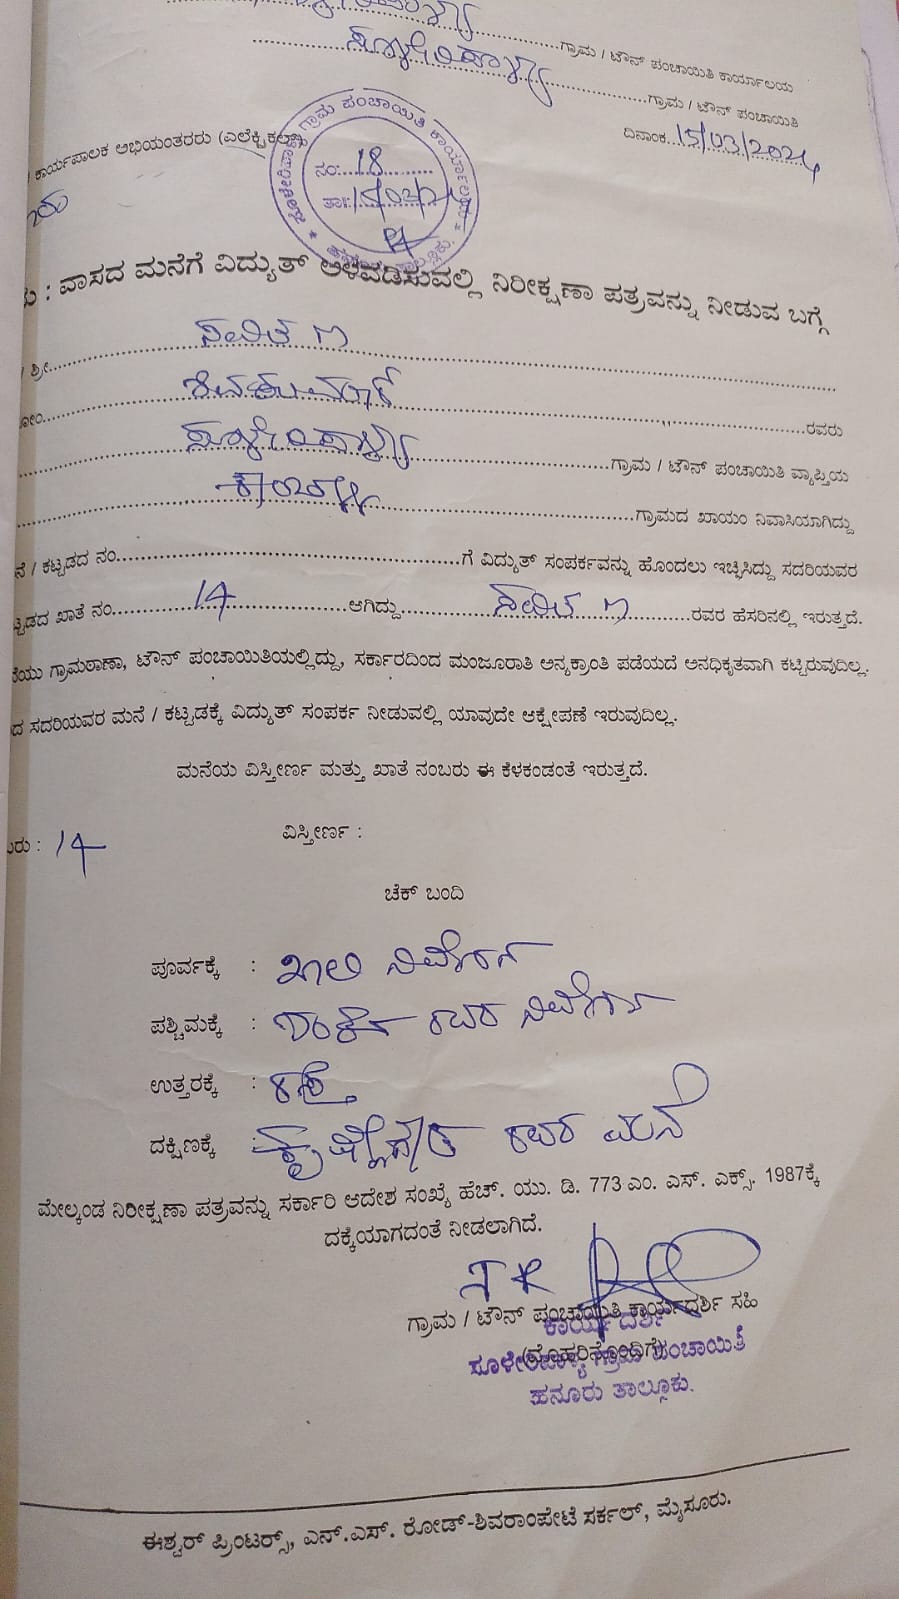 ಗ್ರಾಮ / ಟೌನ್ ಪಂಚಾಯಿತಿ ಕಾರ್ಯಾಲಯ
ಸೂಳೇರಿಪಾಳ್ಯ ಗ್ರಾಮ / ಟೌನ್ ಪಂಚಾಯಿತಿ
ದಿನಾಂಕ 15/03/2024
ಕಾರ್ಯಪಾಲಕ ಅಭಿಯಂತರರು (ಎಲೆಕ್ಟ್ರಿಕಲ್)
ಗ್ರಾಮ ಪಂಚಾಯಿತಿ ಕಾರ್ಯಾಲಯ
ನಂ: 18
ತಾ: 15/03/24
: ವಾಸದ ಮನೆಗೆ ವಿದ್ಯುತ್ ಅಳವಡಿಸುವಲ್ಲಿ ನಿರೀಕ್ಷಣಾ ಪತ್ರವನ್ನು ನೀಡುವ ಬಗ್ಗೆ
/ ಶ್ರೀ ಸವಿತ M
ಶಿವಕುಮಾರ್ ರವರು
ಸೂಳೇರಿಪಾಳ್ಯ ಗ್ರಾಮ / ಟೌನ್ ಪಂಚಾಯಿತಿ ವ್ಯಾಪ್ತಿಯ
ಗ್ರಾಮದ ಖಾಯಂ ನಿವಾಸಿಯಾಗಿದ್ದು
/ ಕಟ್ಟಡದ ನಂ ಗೆ ವಿದ್ಯುತ್ ಸಂಪರ್ಕವನ್ನು ಹೊಂದಲು ಇಚ್ಛಿಸಿದ್ದು ಸದರಿಯವರ
ಖಾತೆ ನಂ 14 ಆಗಿದ್ದು ಸವಿತ M ರವರ ಹೆಸರಿನಲ್ಲಿ ಇರುತ್ತದೆ.
ಗ್ರಾಮಠಾಣಾ, ಟೌನ್ ಪಂಚಾಯಿತಿಯಲ್ಲಿದ್ದು, ಸರ್ಕಾರದಿಂದ ಮಂಜೂರಾತಿ ಅನ್ಯಕ್ರಾಂತಿ ಪಡೆಯದೆ ಅನಧಿಕೃತವಾಗಿ ಕಟ್ಟಿರುವುದಿಲ್ಲ.
ಸದರಿಯವರ ಮನೆ / ಕಟ್ಟಡಕ್ಕೆ ವಿದ್ಯುತ್ ಸಂಪರ್ಕ ನೀಡುವಲ್ಲಿ ಯಾವುದೇ ಆಕ್ಷೇಪಣೆ ಇರುವುದಿಲ್ಲ.
ಮನೆಯ ವಿಸ್ತೀರ್ಣ ಮತ್ತು ಖಾತೆ ನಂಬರು ಈ ಕೆಳಕಂಡಂತೆ ಇರುತ್ತದೆ.
: 14 ವಿಸ್ತೀರ್ಣ :
ಚೆಕ್ ಬಂದಿ
ಪೂರ್ವಕ್ಕೆ : ಖಾಲಿ ನಿವೇಶನ
ಪಶ್ಚಿಮಕ್ಕೆ : ರವರ ನಿವೇಶನ
ಉತ್ತರಕ್ಕೆ : ರಸ್ತೆ
ದಕ್ಷಿಣಕ್ಕೆ : ರವರ ಮನೆ
ಮೇಲ್ಕಂಡ ನಿರೀಕ್ಷಣಾ ಪತ್ರವನ್ನು ಸರ್ಕಾರಿ ಆದೇಶ ಸಂಖ್ಯೆ ಹೆಚ್. ಯು. ಡಿ. 773 ಎಂ. ಎಸ್. ಎಕ್ಸ್. 1987ಕ್ಕೆ
ದಕ್ಕೆಯಾಗದಂತೆ ನೀಡಲಾಗಿದೆ.
ಗ್ರಾಮ / ಟೌನ್ ಪಂಚಾಯಿತಿ ಕಾರ್ಯದರ್ಶಿ ಸಹಿ
ಕಾರ್ಯದರ್ಶಿ
(ಮೊಹರಿನೊಂದಿಗೆ)
ಸೂಳೇರಿಪಾಳ್ಯ ಗ್ರಾಮ ಪಂಚಾಯಿತಿ
ಹನೂರು ತಾಲ್ಲೂಕು.
ಈಶ್ವರ್ ಪ್ರಿಂಟರ್ಸ್, ಎನ್.ಎಸ್. ರೋಡ್-ಶಿವರಾಂಪೇಟೆ ಸರ್ಕಲ್, ಮೈಸೂರು.